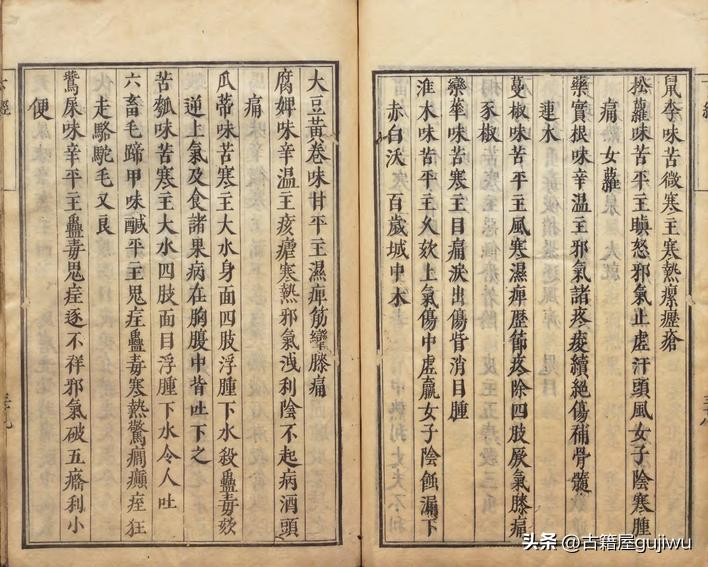 鼠李味苦微寒主寒熱瘰癧瘡
松蘿味苦平主瞋怒邪氣止虛汗頭風女子陰寒腫
痛 女蘿
藥實根味辛温主邪氣諸疼痠續絕傷補骨髓
連木
蔓椒味苦平主風寒濕痺歷節疼除四肢厥氣膝痛
豕椒
欒華味苦寒主目痛淚出傷眥消目腫
淮木味苦平主久欬上氣傷中虛羸女子陰蝕漏下
赤白沃 百歲城中木
大豆黃卷味甘平主濕痺筋攣膝痛
腐婢味辛温主痎瘧寒熱邪氣洩利陰不起病酒頭
痛
瓜蒂味苦寒主大水身面四肢浮腫下水殺蠱毒欬
逆上氣及食諸果病在胸腹中皆吐下之
苦瓠味苦寒主大水四肢面目浮腫下水令人吐
六畜毛蹄甲味鹹平主鬼疰蠱毒寒熱驚癇癲痓狂
走駱駝毛又良
鷰屎味辛平主蠱毒鬼疰逐不祥邪氣破五癃利小
便
頭条 @古籍屋gujiwu